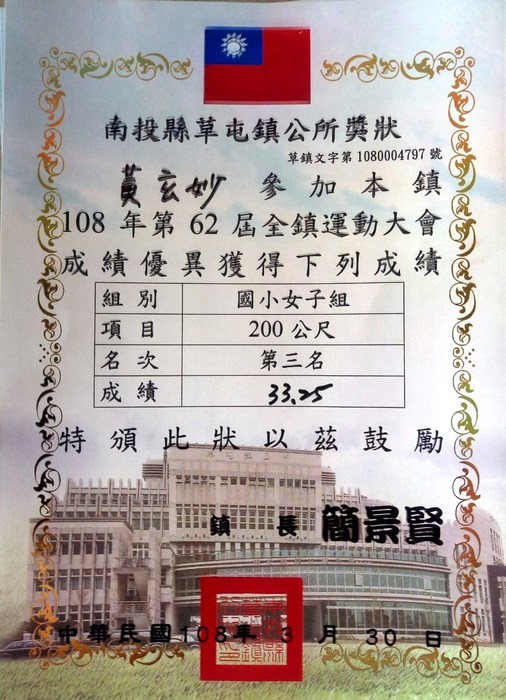 南投縣草屯鎮公所獎狀
草鎮文字第 1080004797 號
黃玄妙 參加本鎮
108 年第 62 屆全鎮運動大會
成績優異獲得下列成績
組別 國小女子組
項目 200 公尺
名次 第三名
成績 33.25
特頒此狀以茲鼓勵
鎮長 簡景賢
中華民國 108 年 3 月 30 日